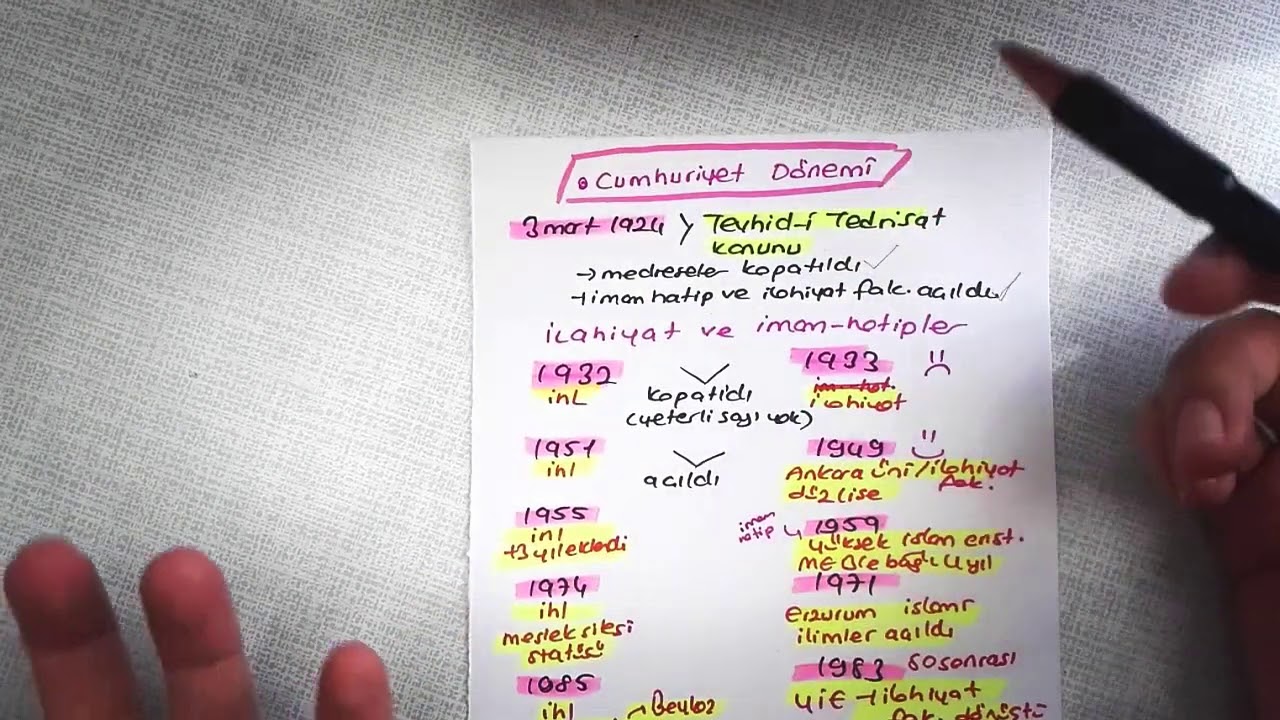 • Cumhuriyet Dönemî
3 mart 1924 > Tevhid-i Tedrisat
kanunu
→ medreseler kapatıldı ✓
→ imam hatip ve ilahiyat fak. açıldı ✓
ilahiyat ve imam-hatipler
1932
ihl
kapatıldı
(yeterli sayı yok)
1933
ilahiyat
1951
ihl
açıldı
1949
Ankara üni/ilahiyat
fak.
düz lise
1955
ihl
+3 yıl eklendi
imam
hatip
1959
yüksek islam enst.
MEB'e bağlı 4 yıl
1974
ihl
meslek lisesi
statüsü
1971
Erzurum islami
ilimler açıldı
1985
ihl
Beykoz
1983 80 sonrası
YİE → ilahiyat
fak. dönüştü